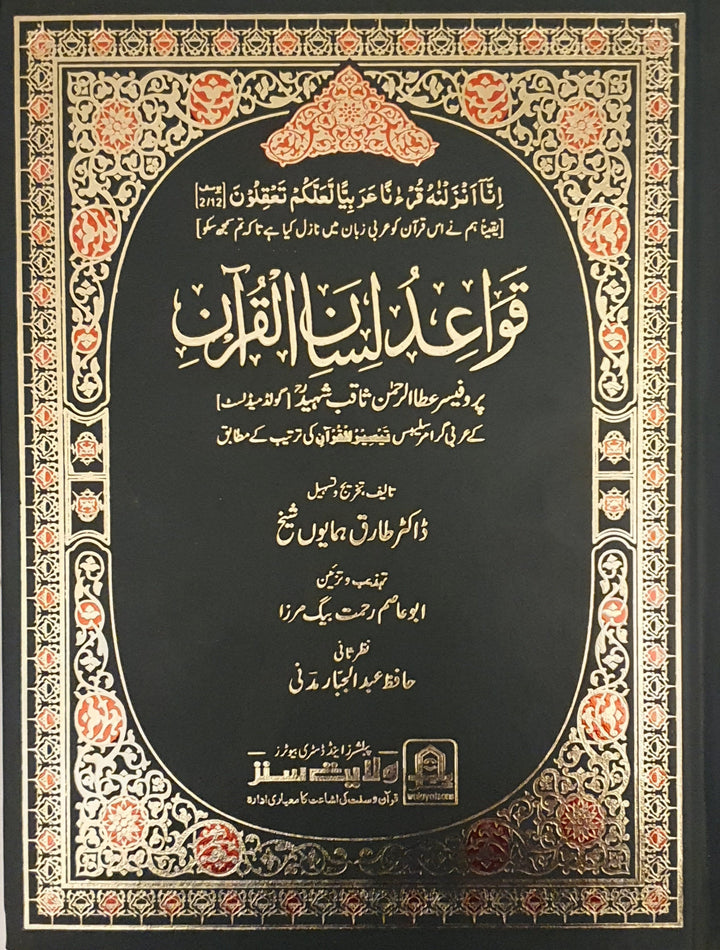 اِنَّآ اَنْزَلْنٰهُ قُرْءٰنًا عَرَبِيًّا لَّعَلَّكُمْ تَعْقِلُوْنَ [یوسف 2/12]
[یقیناً ہم نے اس قرآن کو عربی زبان میں نازل کیا ہے تاکہ تم سمجھ سکو]
قَوَاعِدُ لِسَانِ الْقُرْآنِ
پروفیسر عطا الرحمٰن ثاقب شہیدؒ [گولڈ میڈلسٹ]
کے عربی گرامر سلیبس تَیْسِیْرُ الْقُرْآنِ کی ترتیب کے مطابق
تالیف، تخریج و تسہیل
ڈاکٹر طارق ہمایوں شیخ
تہذیب و تزئین
ابو عاصم رحمت بیگ مرزا
نظر ثانی
حافظ عبد الجبار مدنی
پبلشرز اینڈ ڈسٹری بیوٹرز
ولایت سنز
قرآن و سنت کی اشاعت کا معیاری ادارہ